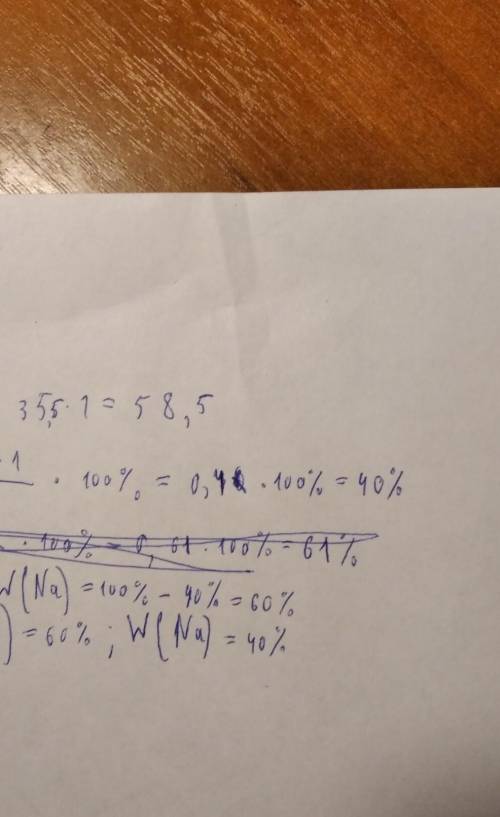 35,5 · 1 = 58,5
· 1
· 100% = 0,4 · 100% = 40%
· 100% = 0,61 · 100% = 61%
W(Na) = 100% - 40% = 60%
) = 60% ; W(Na) = 40%